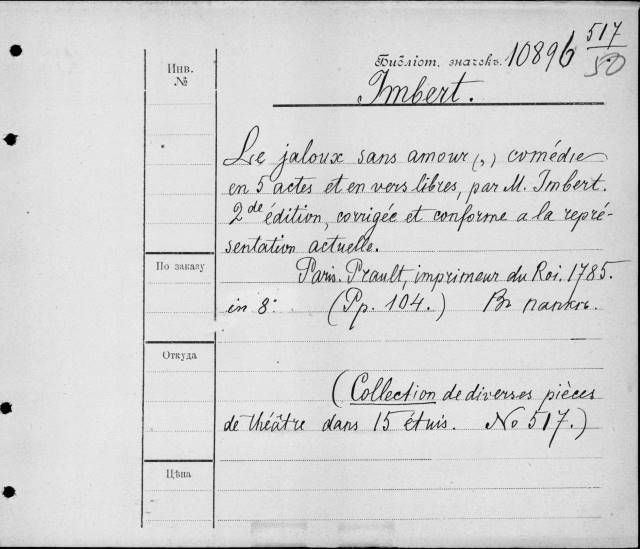 517
Библіот. значекъ. 10896 50
Инв.
№
Imbert.
Le jaloux sans amour (,) comédie
en 5 actes et en vers libres, par M. Imbert.
2de édition, corrigée et conforme a la repré-
sentation actuelle.
По заказу
Paris. Prault, imprimeur du Roi. 1785.
in 8: (Pp. 104.) Въ папкѣ.
Откуда
(Collection de diverses pièces
de théâtre dans 15 étuis. No 517.)
Цѣна